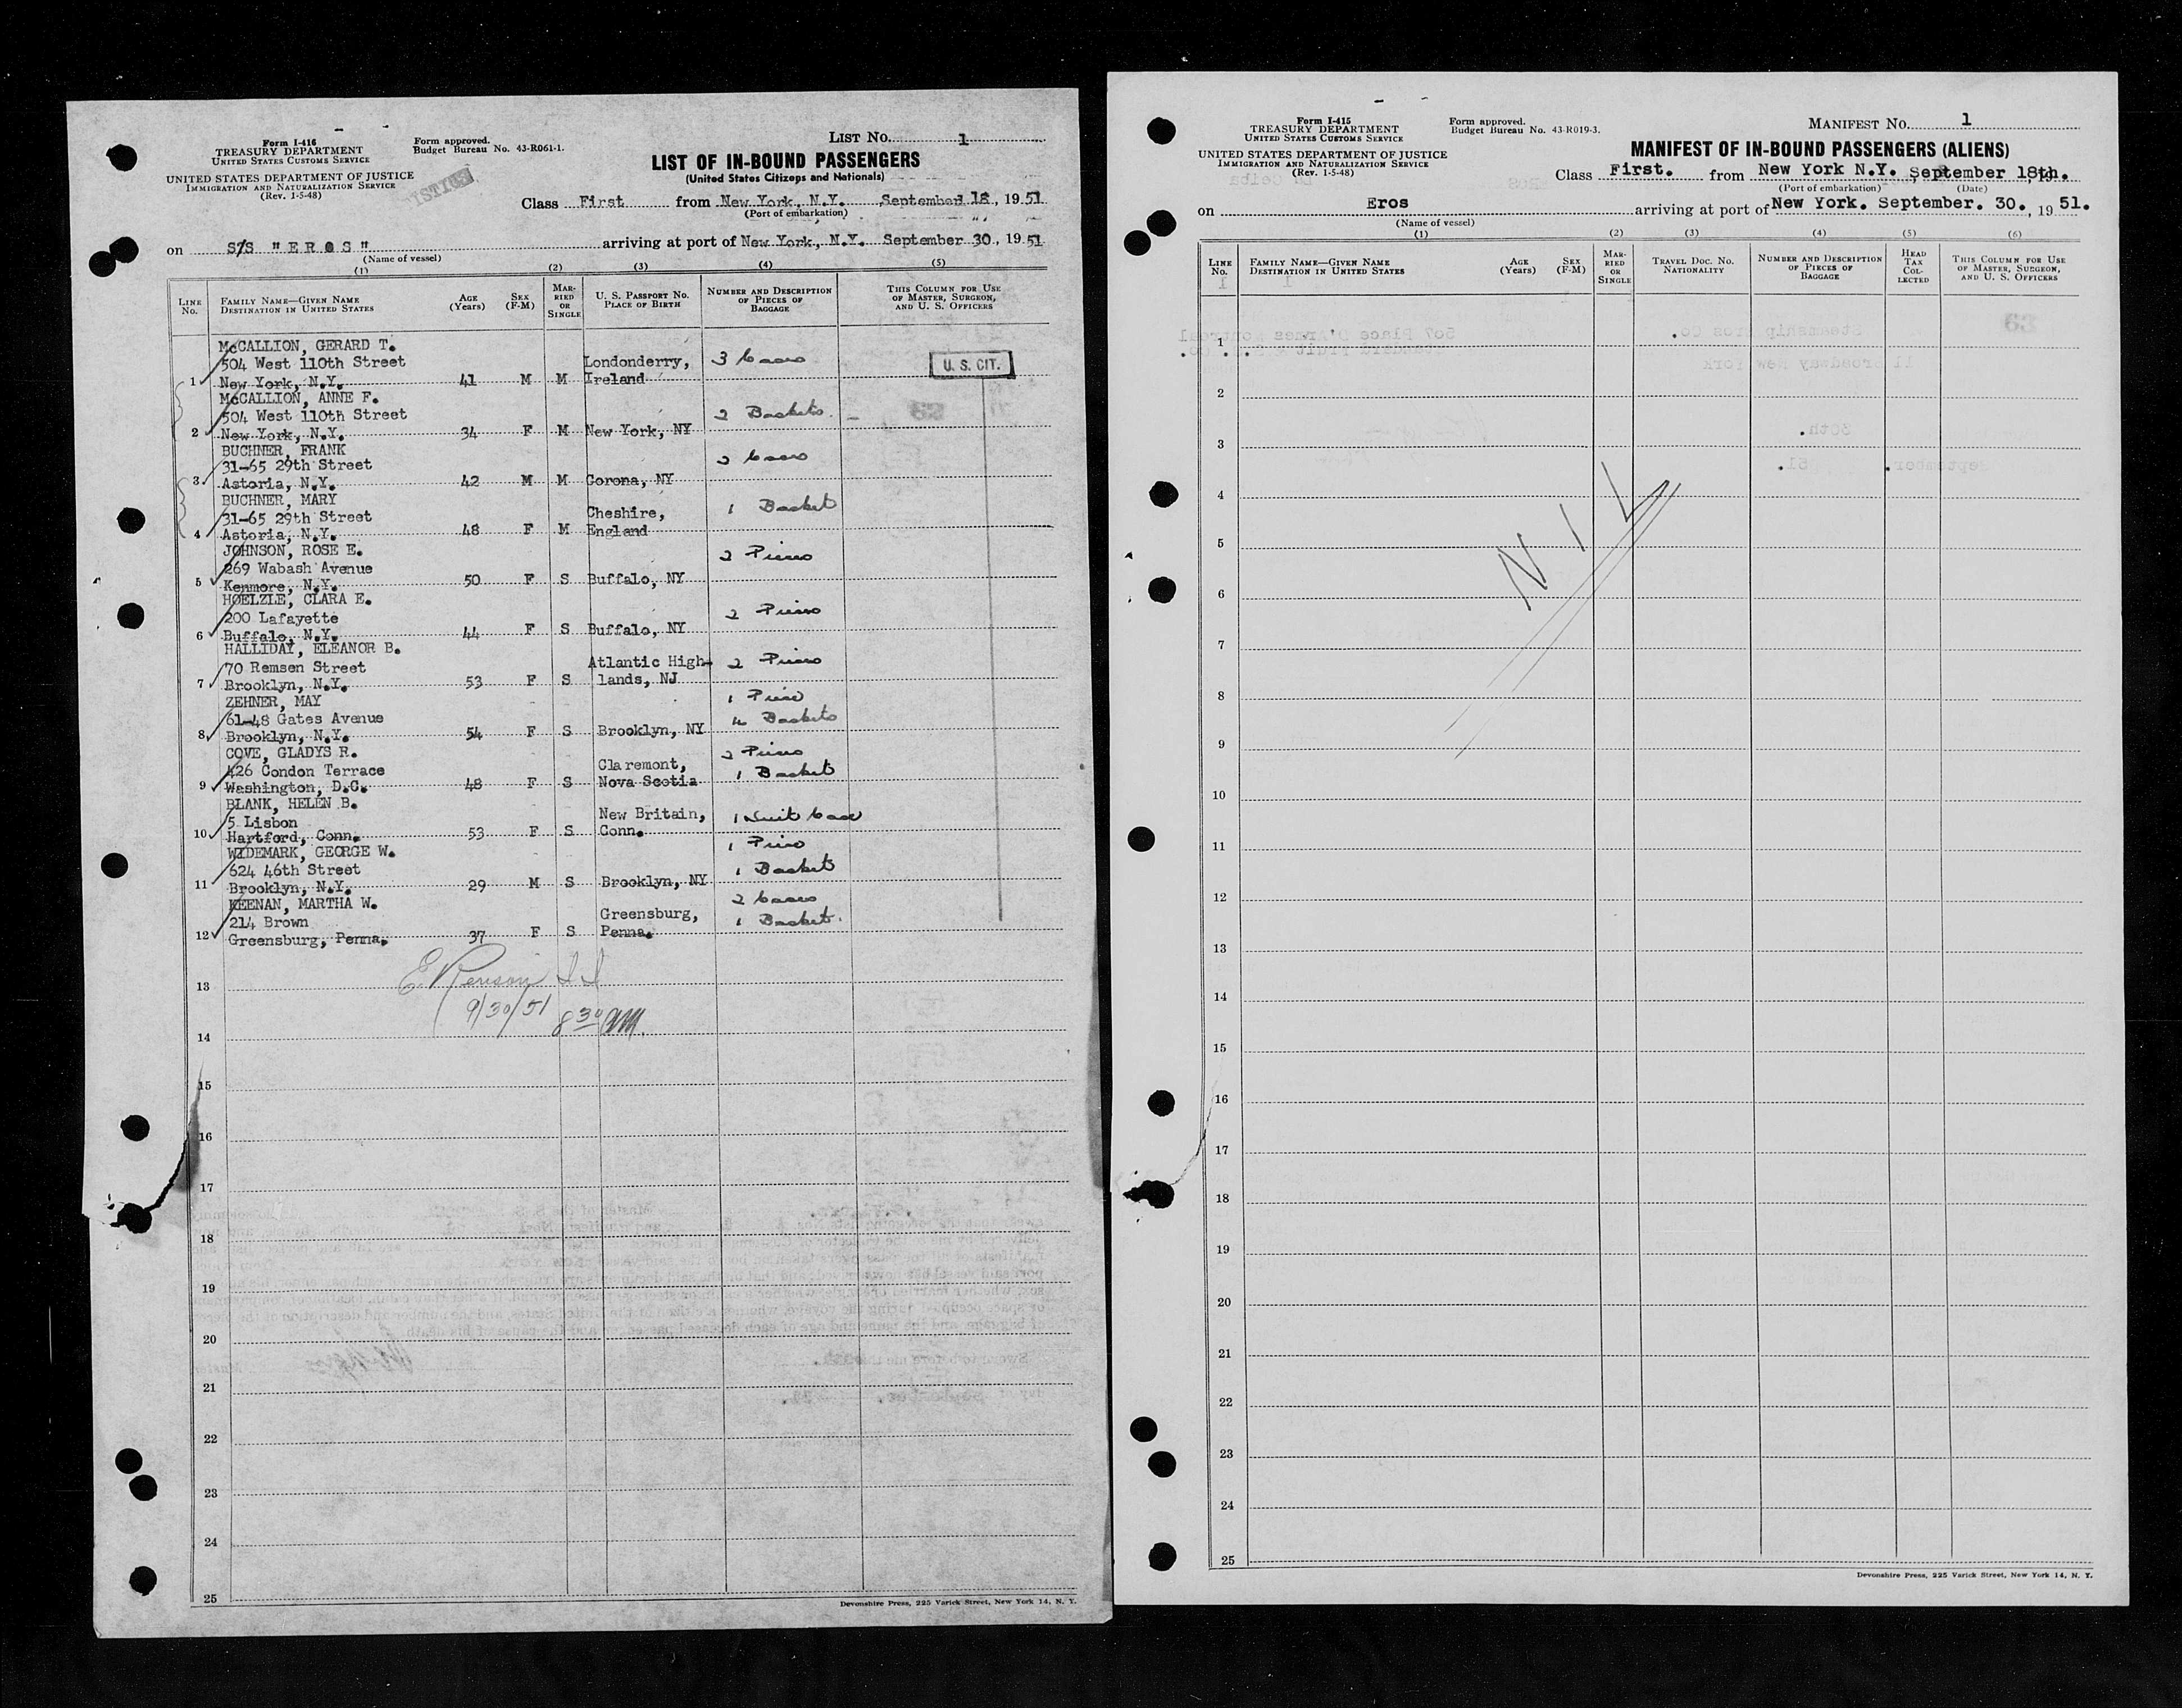 Form I-416
TREASURY DEPARTMENT
UNITED STATES CUSTOMS SERVICE
UNITED STATES DEPARTMENT OF JUSTICE
IMMIGRATION AND NATURALIZATION SERVICE
(Rev. 1-5-48)
Form approved.
Budget Bureau No. 43-R061-1.
LIST No. 1
LIST OF IN-BOUND PASSENGERS
(United States Citizens and Nationals)
Class First from New York, N.Y. September 18, 1951
(Port of embarkation)
on S/S "EROS" arriving at port of New York, N.Y. September 30, 1951
(Name of vessel)
(1) (2) (3) (4) (5)
LINE No. FAMILY NAME—GIVEN NAME DESTINATION IN UNITED STATES AGE (Years) SEX (F-M) MARRIED OR SINGLE U. S. PASSPORT NO. PLACE OF BIRTH NUMBER AND DESCRIPTION OF PIECES OF BAGGAGE THIS COLUMN FOR USE OF MASTER, SURGEON, AND U. S. OFFICERS
McCALLION, GERARD T.
504 West 110th Street Londonderry, 3 Cases U. S. CIT.
1 New York, N.Y. 41 M M Ireland
McCALLION, ANNE F.
504 West 110th Street 2 Baskets
2 New York, N.Y. 34 F M New York, NY
BUCHNER, FRANK
31-65 29th Street 2 Cases
3 Astoria, N.Y. 42 M M Corona, NY
BUCHNER, MARY
31-65 29th Street Cheshire, 1 Basket
4 Astoria, N.Y. 48 F M England
JOHNSON, ROSE E.
269 Wabash Avenue 2 Pieces
5 Kenmore, N.Y. 50 F S Buffalo, NY
HOELZLE, CLARA E.
200 Lafayette 2 Pieces
6 Buffalo, N.Y. 44 F S Buffalo, NY
HALLIDAY, ELEANOR B.
70 Remsen Street Atlantic High- 2 Pieces
7 Brooklyn, N.Y. 53 F S lands, NJ
ZEHNER, MAY 1 Piece
61-48 Gates Avenue 4 Baskets
8 Brooklyn, N.Y. 54 F S Brooklyn, NY
COVE, GLADYS R. 2 Pieces
426 Condon Terrace Claremont, 1 Basket
9 Washington, D.C. 48 F S Nova Scotia
BLANK, HELEN B.
5 Lisbon New Britain, 1 Suit Case
10 Hartford, Conn. 53 F S Conn.
WIDEMARK, GEORGE W. 1 Piece
624 46th Street 1 Basket
11 Brooklyn, N.Y. 29 M S Brooklyn, NY
KEENAN, MARTHA W. 2 Cases
214 Brown Greensburg, 1 Basket
12 Greensburg, Penna. 37 F S Penna.
13
9/30/51 8 30 AM
14
15
16
17
18
19
20
21
22
23
24
25
Devonshire Press, 225 Varick Street, New York 14, N. Y.
Form I-415
TREASURY DEPARTMENT
UNITED STATES CUSTOMS SERVICE
UNITED STATES DEPARTMENT OF JUSTICE
IMMIGRATION AND NATURALIZATION SERVICE
(Rev. 1-5-48)
Form approved.
Budget Bureau No. 43-R019-3.
MANIFEST No. 1
MANIFEST OF IN-BOUND PASSENGERS (ALIENS)
Class First. from New York N.Y. September 18th.
(Port of embarkation) (Date)
on Eros arriving at port of New York. September. 30., 1951.
(Name of vessel)
(1) (2) (3) (4) (5) (6)
LINE No. FAMILY NAME—GIVEN NAME DESTINATION IN UNITED STATES AGE (Years) SEX (F-M) MARRIED OR SINGLE TRAVEL DOC. NO. NATIONALITY NUMBER AND DESCRIPTION OF PIECES OF BAGGAGE HEAD TAX COLLECTED THIS COLUMN FOR USE OF MASTER, SURGEON, AND U. S. OFFICERS
1
2
3
4
NIL
5
6
7
8
9
10
11
12
13
14
15
16
17
18
19
20
21
22
23
24
25
Devonshire Press, 225 Varick Street, New York 14, N. Y.